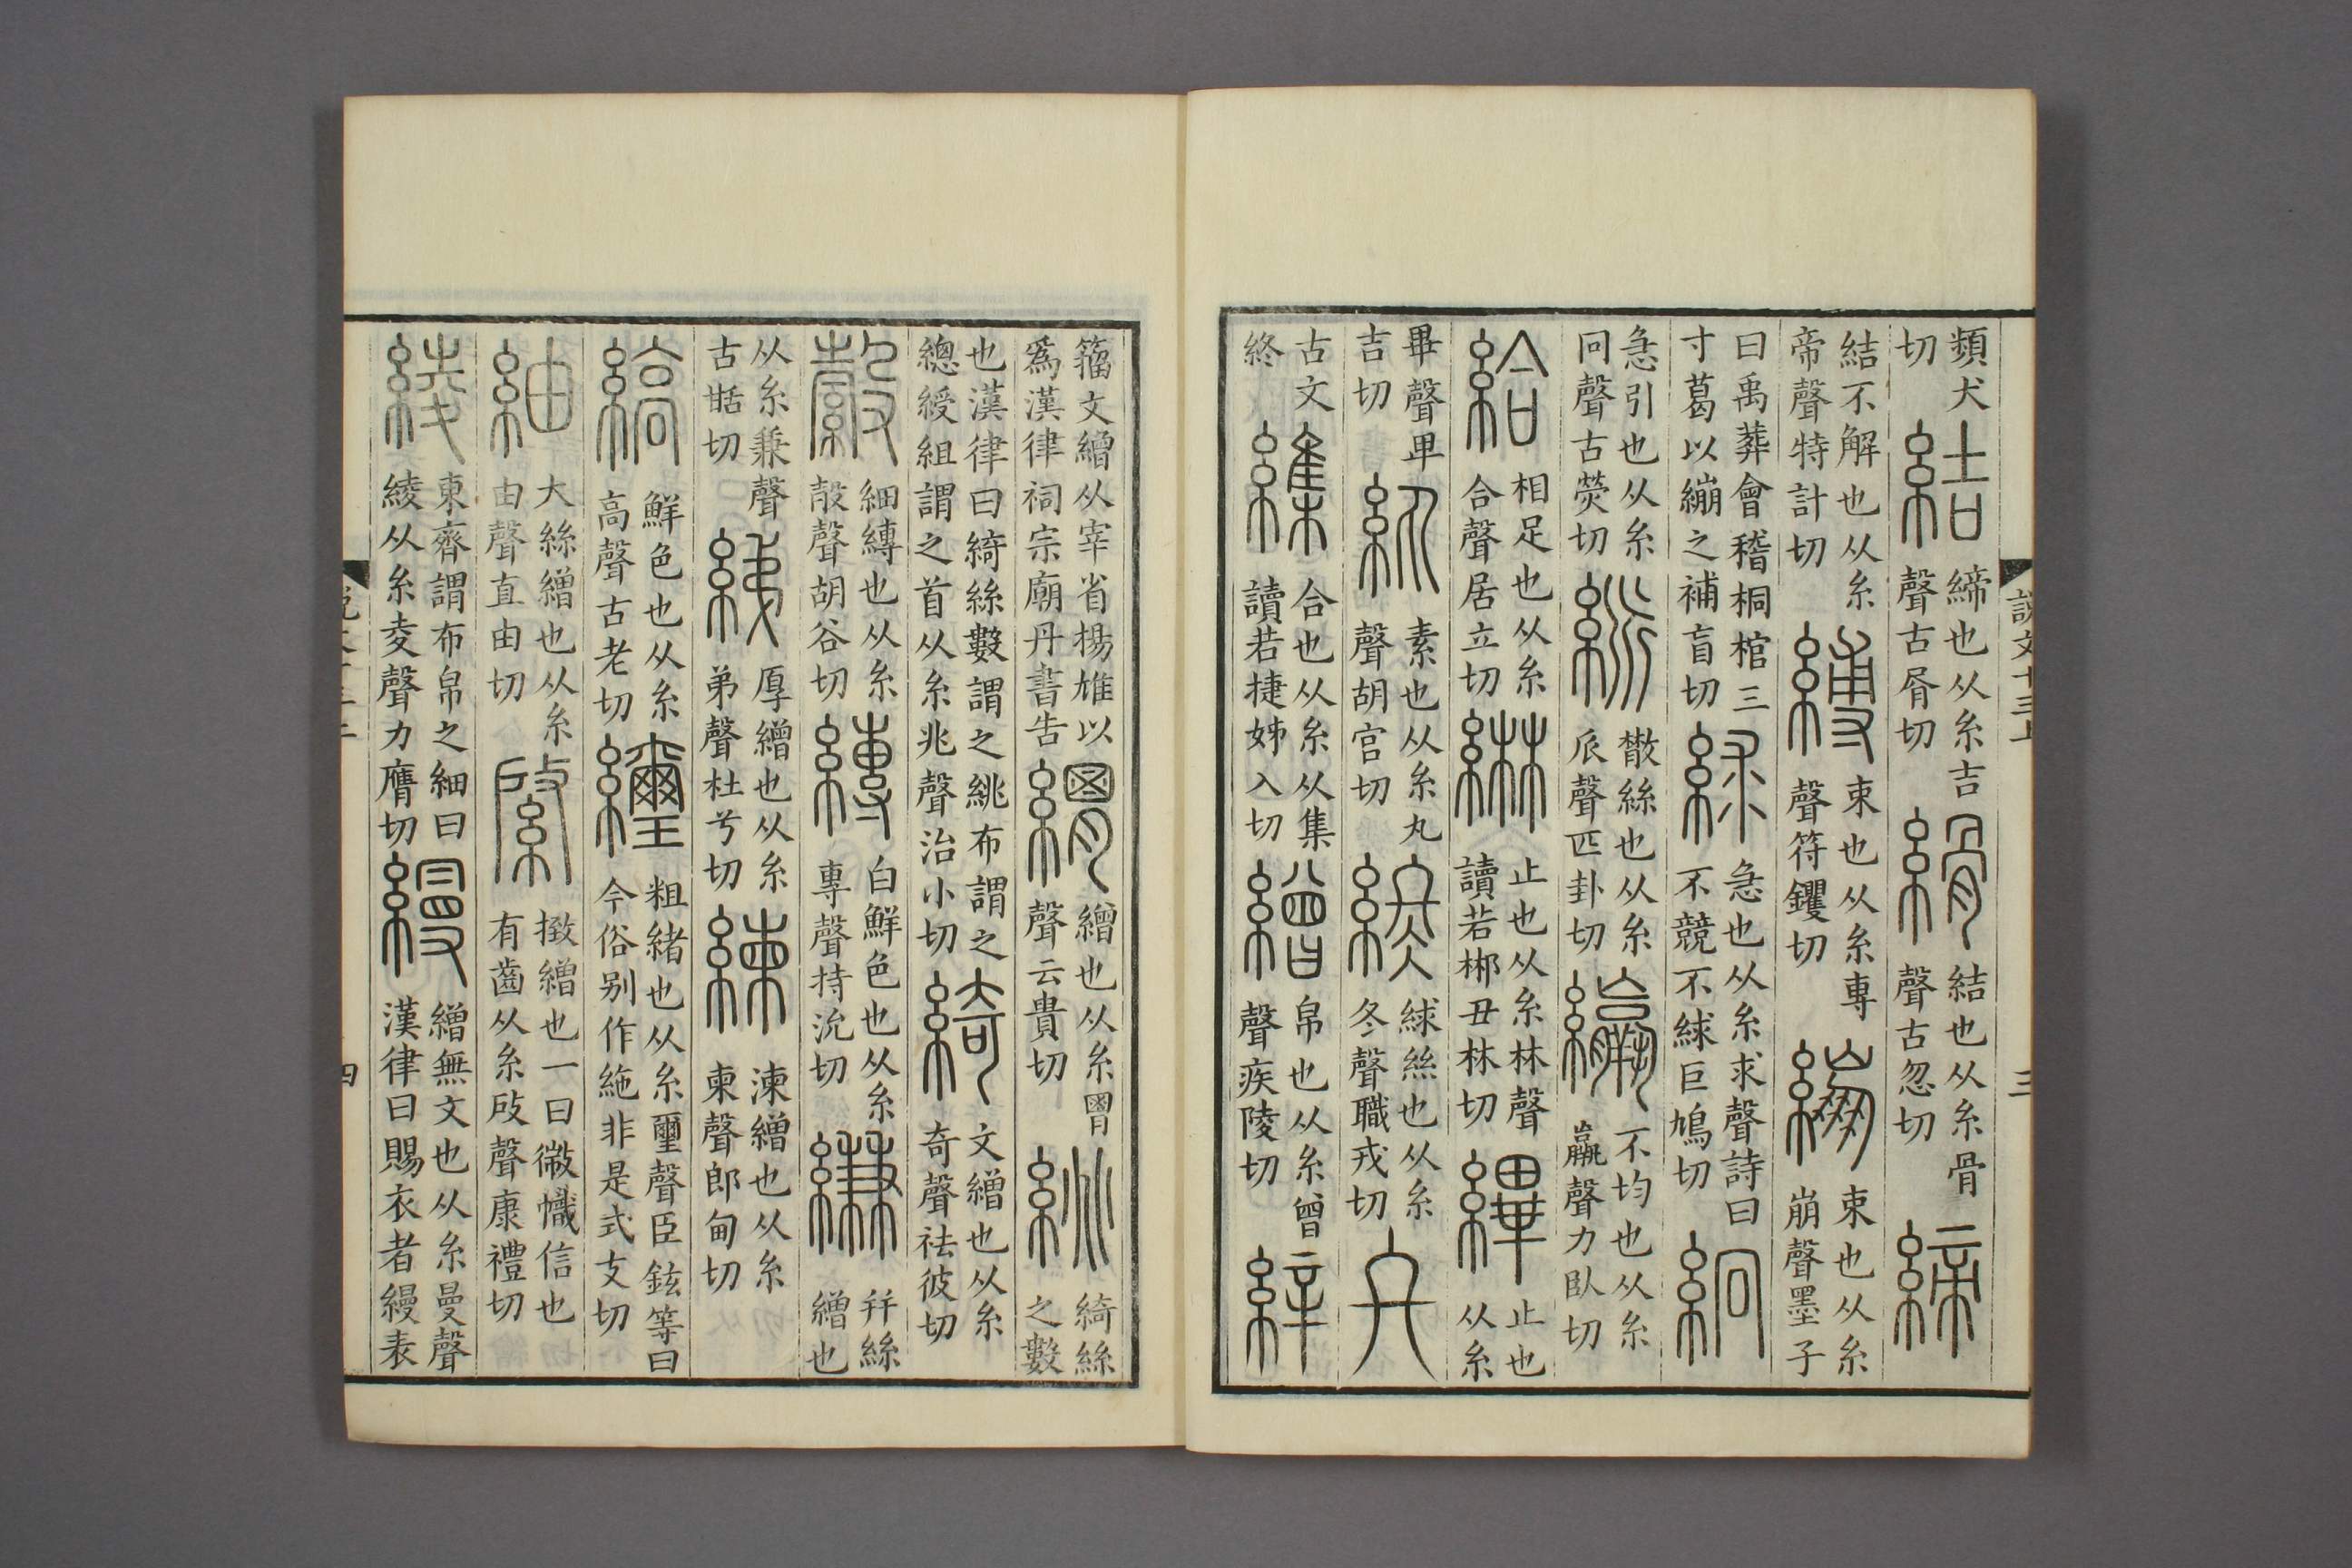 説文十三上 三
頻犬切 結 締也从糸吉聲古屑切 縎 結也从糸骨聲古忽切 締
結不解也从糸帝聲特計切 縛 束也从糸専聲符钁切 繃 束也从糸崩聲墨子
曰禹葬會稽桐棺三寸葛以繃之補盲切 絿 急也从糸求聲詩曰不競不絿巨鳩切 絅
急引也从糸冋聲古熒切 𥿯 㪔絲也从糸𠂢聲匹卦切 𦇄 不均也从糸羸聲力臥切
給 相足也从糸合聲居立切 綝 止也从糸林聲讀若郴丑林切 縪 止也从糸
畢聲卑吉切 紈 素也从糸丸聲胡官切 終 絿絲也从糸冬聲職戎切 𠔾
古文終 䌖 合也从糸从集讀若捷姊入切 繒 帛也从糸曾聲疾陵切 縡
籒文繒从宰省揚雄以爲漢律祠宗廟丹書告 䌇 繒也从糸胃聲云貴切 絩 綺絲之數
也漢律曰綺絲數謂之絩布謂之總綬組謂之首从糸兆聲治小切 綺 文繒也从糸奇聲袪彼切
縠 細縳也从糸㱿聲胡谷切 縳 白鮮色也从糸專聲持沇切 縑 幷絲繒也
从糸兼聲古甛切 綈 厚繒也从糸弟聲杜兮切 練 湅繒也从糸柬聲郎甸切
縞 鮮色也从糸高聲古老切 𦇧 粗緒也从糸璽聲臣鉉等曰今俗别作絁非是式支切
紬 大絲繒也从糸由聲直由切 綮 㨖繒也一曰徽幟信也有齒从糸㪃聲康禮切
綾 東齊謂布帛之細曰綾从糸夌聲力膺切 縵 繒無文也从糸曼聲漢律曰賜衣者縵表
四